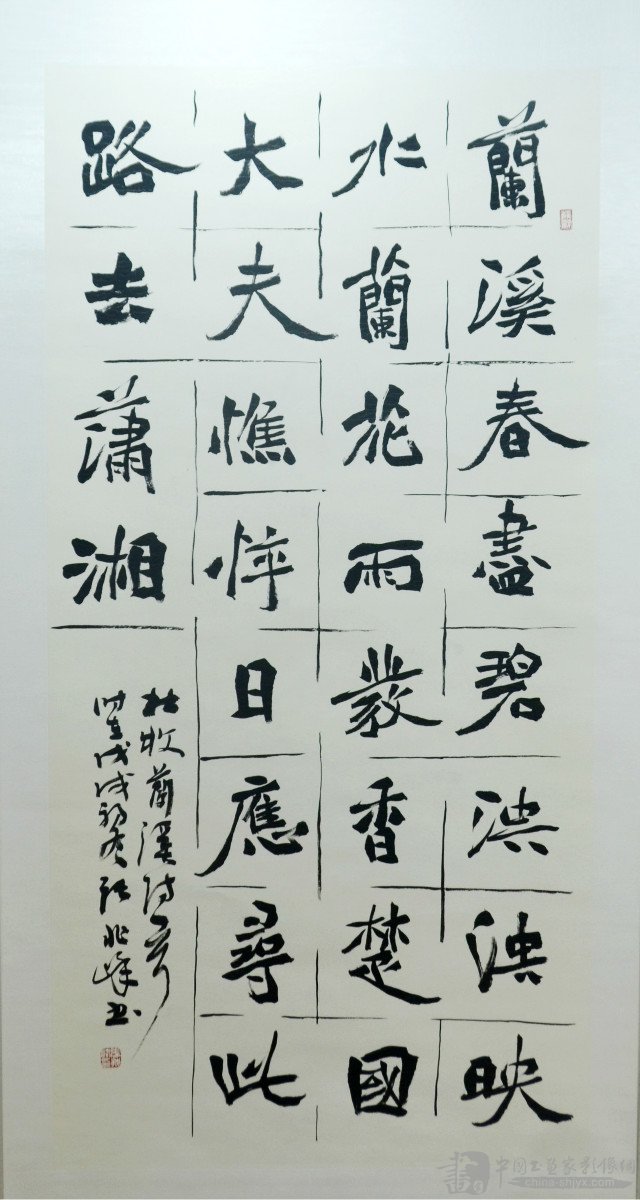 蘭溪春盡碧泱泱映
水蘭花雨發香楚國
大夫憔悴日應尋此
路去瀟湘
杜牧蘭溪詩
戊戌初 兆峰书
中国书画家影像網
china-shjyx.com